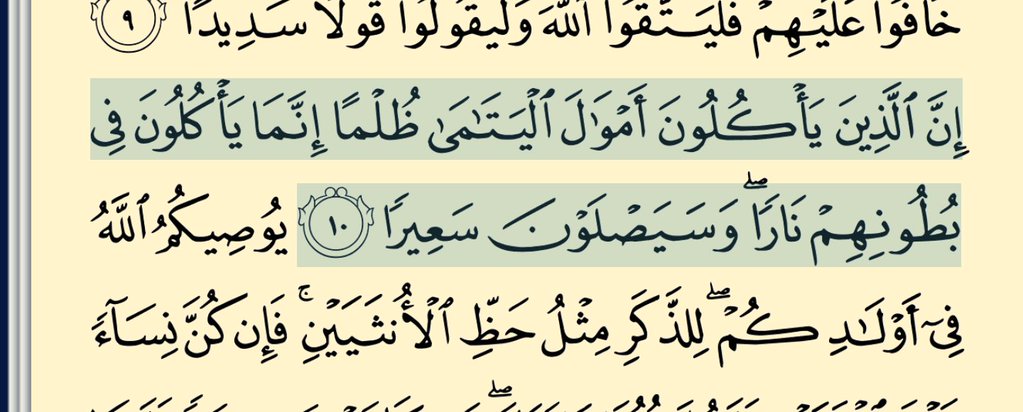 خَافُوا۟ عَلَيْهِمْ فَلْيَتَّقُوا۟ ٱللَّهَ وَلْيَقُولُوا۟ قَوْلًا سَدِيدًا ٩
إِنَّ ٱلَّذِينَ يَأْكُلُونَ أَمْوَٰلَ ٱلْيَتَٰمَىٰ ظُلْمًا إِنَّمَا يَأْكُلُونَ فِى
بُطُونِهِمْ نَارًا ۖ وَسَيَصْلَوْنَ سَعِيرًا ١٠ يُوصِيكُمُ ٱللَّهُ
فِىٓ أَوْلَٰدِكُمْ ۖ لِلذَّكَرِ مِثْلُ حَظِّ ٱلْأُنثَيَيْنِ ۚ فَإِن كُنَّ نِسَآءً